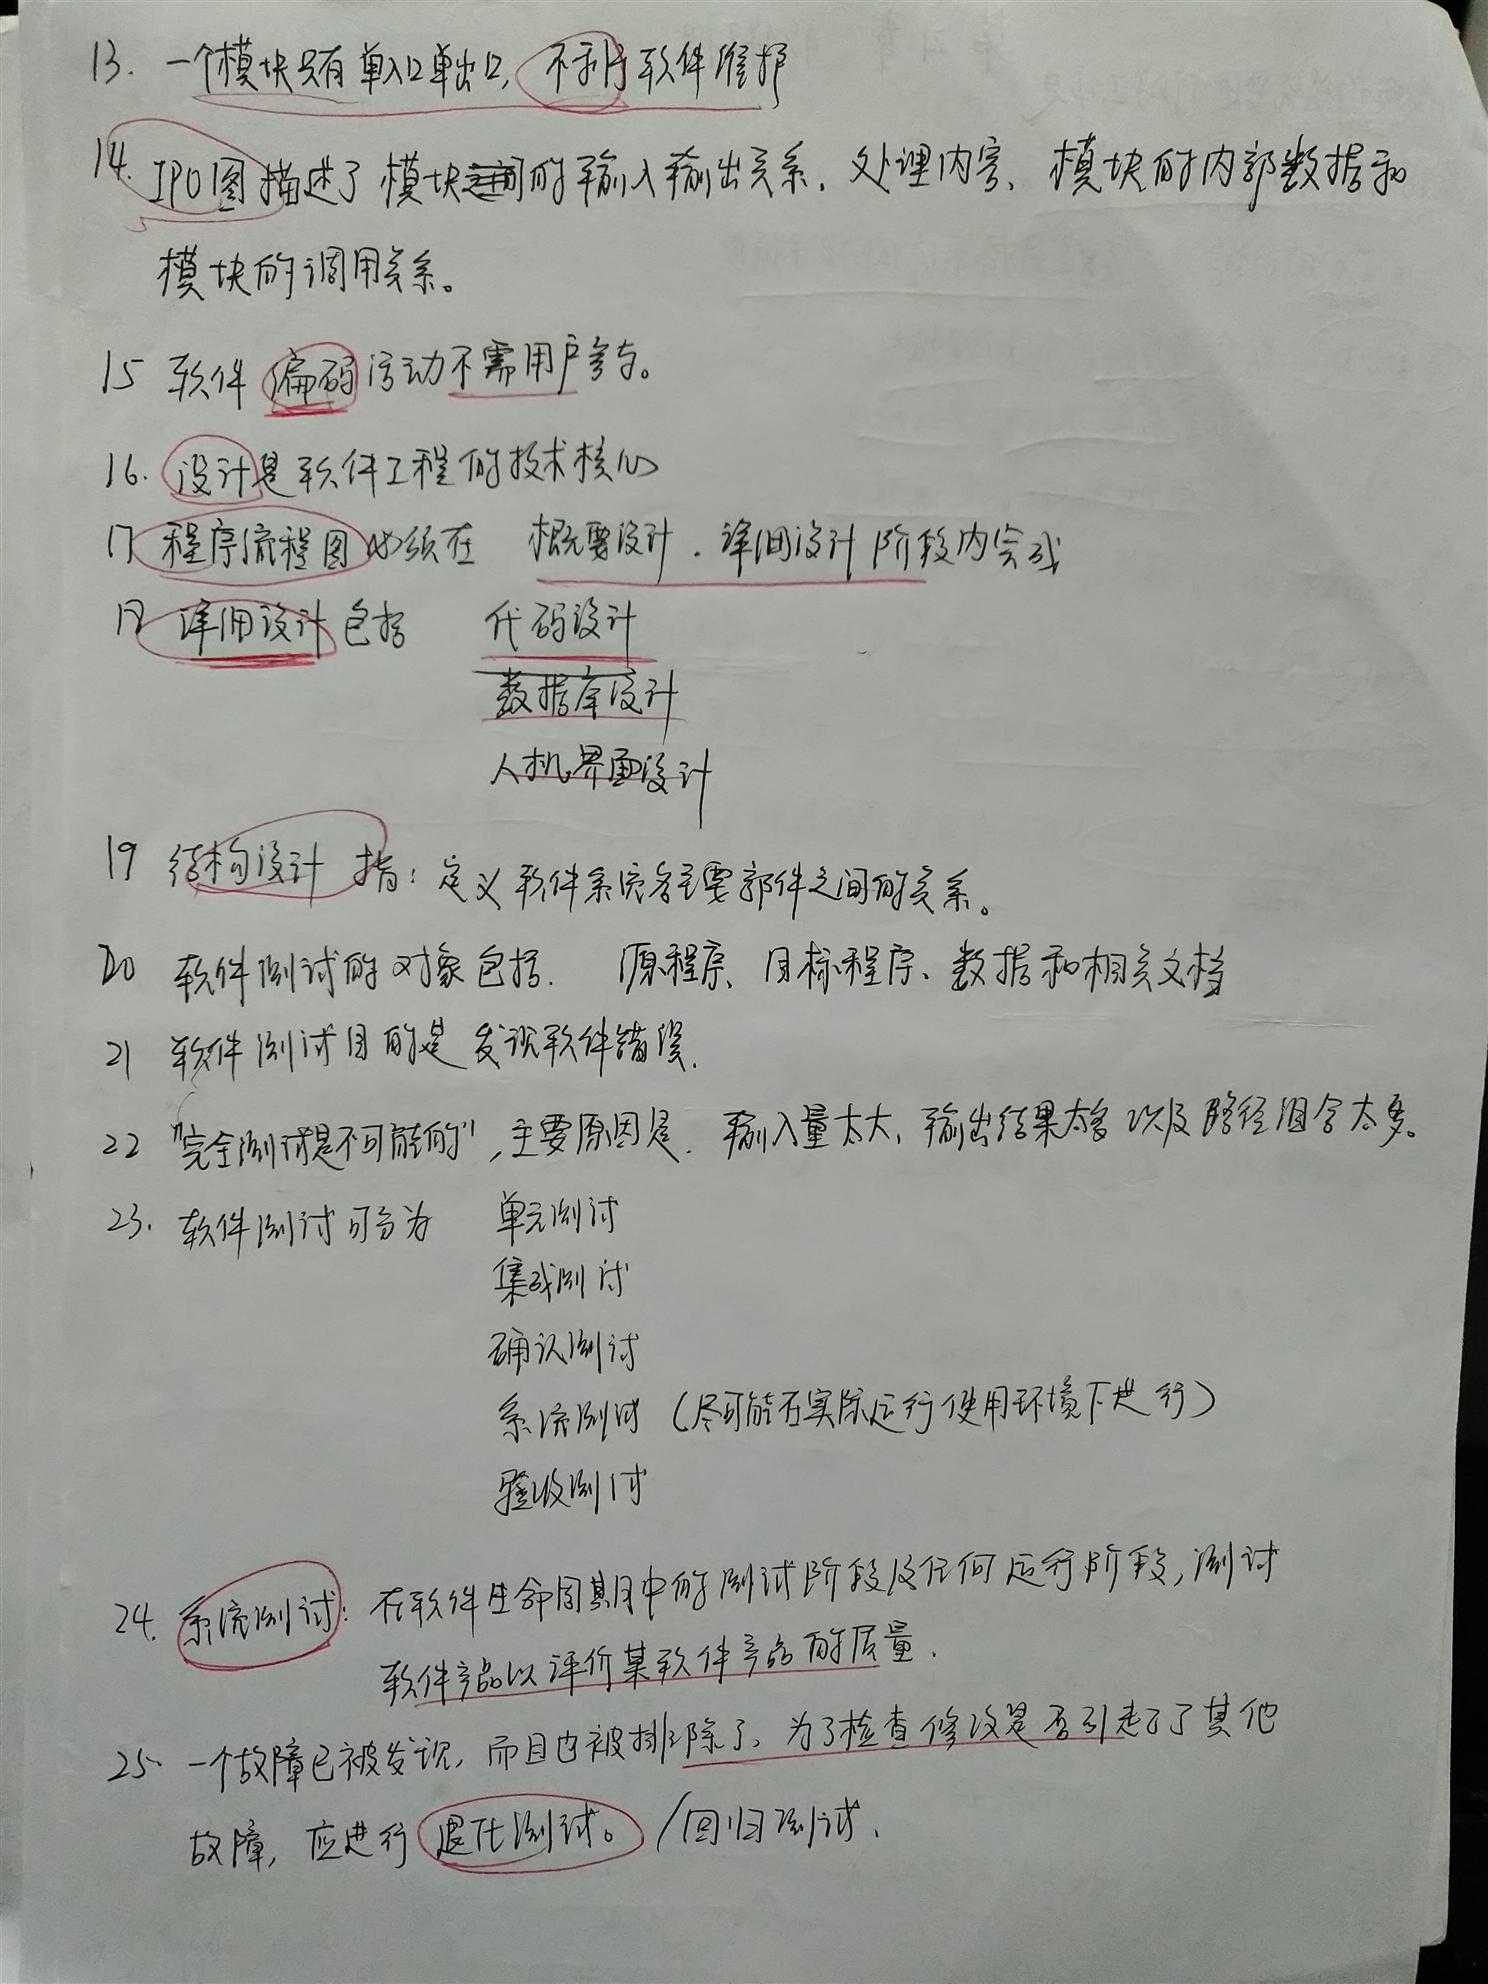 13. 一个模块只有单入口单出口, 不利于软件维护
14. IPO图描述了模块的输入输出关系、处理内容、模块的内部数据和
模块的调用关系。
15 软件编码活动不需用户参与。
16. 设计是软件工程的技术核心
17 程序流程图必须在 概要设计.详细设计阶段内完成
18 详细设计包括 代码设计
数据库设计
人机界面设计
19 结构设计 指:定义软件系统各主要部件之间的关系。
20 软件测试的对象包括. 原程序、目标程序、数据和相关文档
21 软件测试目的是发现软件错误.
22 "完全测试是不可能的",主要原因是. 输入量太大、输出结果太多以及路径组合太多。
23. 软件测试可分为 单元测试
集成测试
确认测试
系统测试 (尽可能在实际运行使用环境下进行)
验收测试
24. 系统测试: 在软件生命周期中的测试阶段及任何运行阶段,测试
软件产品以评价某软件产品的质量.
25. 一个故障已被发现,而且也被排除了、为了检查修改是否引起了其他
故障, 应进行退化测试。/回归测试.